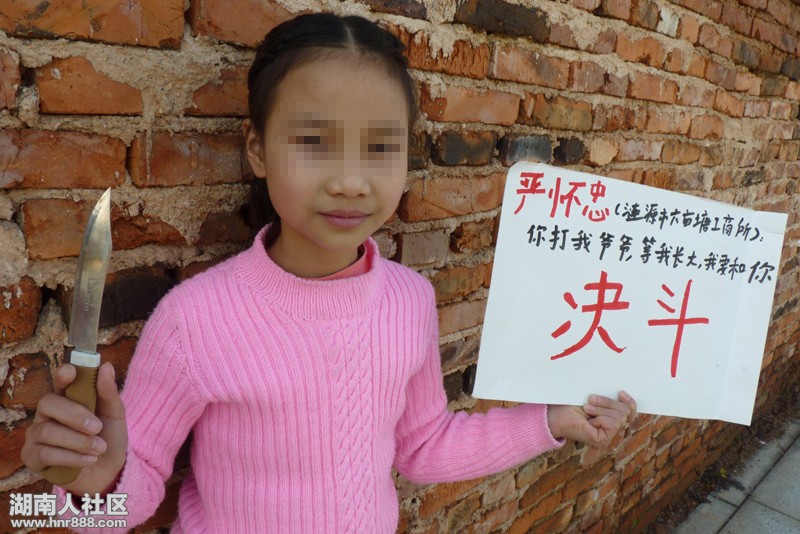 严怀忠(涟源市六亩塘工商所):
你打我爷爷,等我长大,我要和你
决斗
湖南人社区
www.hnr888.com